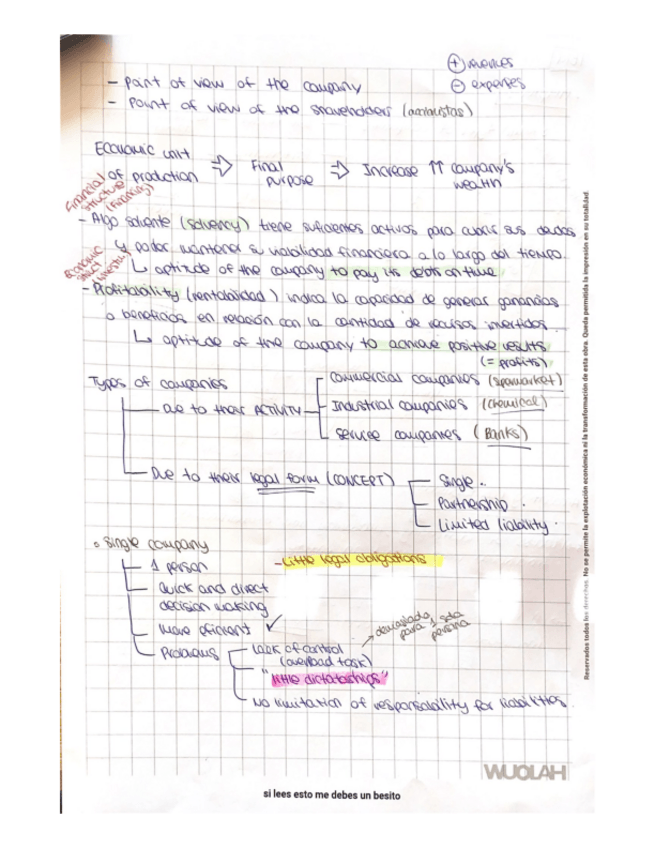 ⊕ revenues
- Point of view of the company
⊖ expenses
- Point of view of the shareholders (accionistas)
Economic unit of production ⇨ Final purpose ⇨ Increase ↑↑ company's wealth
Financial structure (Financing)
- Algo solvente (solvency) tiene suficientes activos para cubrir sus deudas
y poder mantener su viabilidad financiera a lo largo del tiempo.
Economic struct
↳ aptitude of the company to pay its debts on time
- Profitability (rentabilidad) indica la capacidad de generar ganancias
o beneficios en relación con la cantidad de recursos invertidos.
↳ aptitude of the company to achieve positive results
(= profits)
Types of companies
Commercial companies (supermarket)
Due to their ACTIVITY
Industrial companies (chemical)
Service companies (Banks)
Due to their legal form (CONCEPT)
Single.
Partnership.
Limited liability.
o Single company
1 person
- Little legal obligations
Quick and direct
decision making
more eficient ✓
Problems
Lack of control
(overload task)
→ demasiado
para 1 sola
persona
"little dictatorships"
No limitation of responsability for liabilities.
WUOLAH
si lees esto me debes un besito
Reservados todos los derechos. No se permite la explotación económica ni la transformación de esta obra. Queda permitida la impresión en su totalidad.